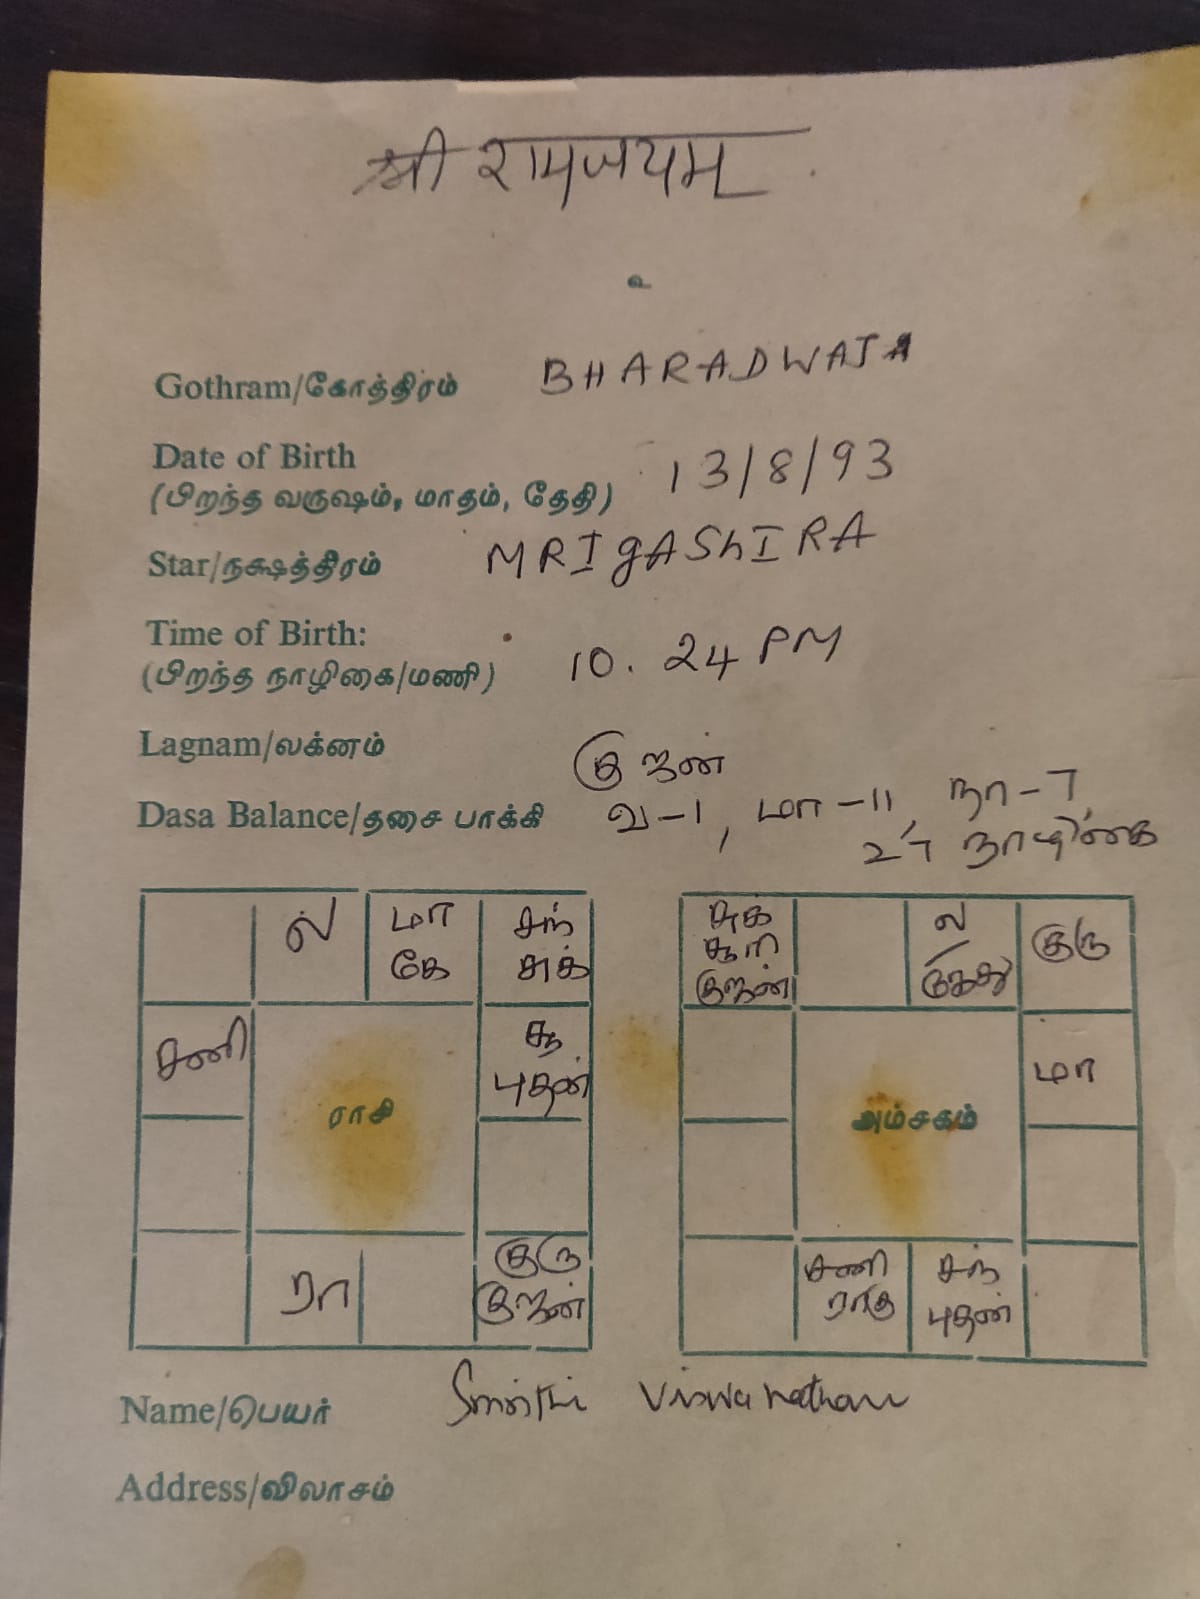 श्री रामजयम
உ
Gothram/கோத்திரம் BHARADWAJA
Date of Birth
(பிறந்த வருஷம், மாதம், தேதி) 13/8/93
Star/நக்ஷத்திரம் MRIgAShIRA
Time of Birth:
(பிறந்த நாழிகை/மணி) 10. 24 PM
Lagnam/லக்னம்
குஜன்
Dasa Balance/தசை பாக்கி வ-1, மா-11, நா-7,
27 நாழிகை
ல
மா
கே
சந்
சுக்
சனி
சூ
புதன்
ராசி
ரா
குரு
குஜன்
சுக்
சூரி
குஜன்
ல
குரு
மா
அம்சகம்
சனி
ராகு
சந்
புதன்
Name/பெயர் Smrithi Viswanathan
Address/விலாசம்